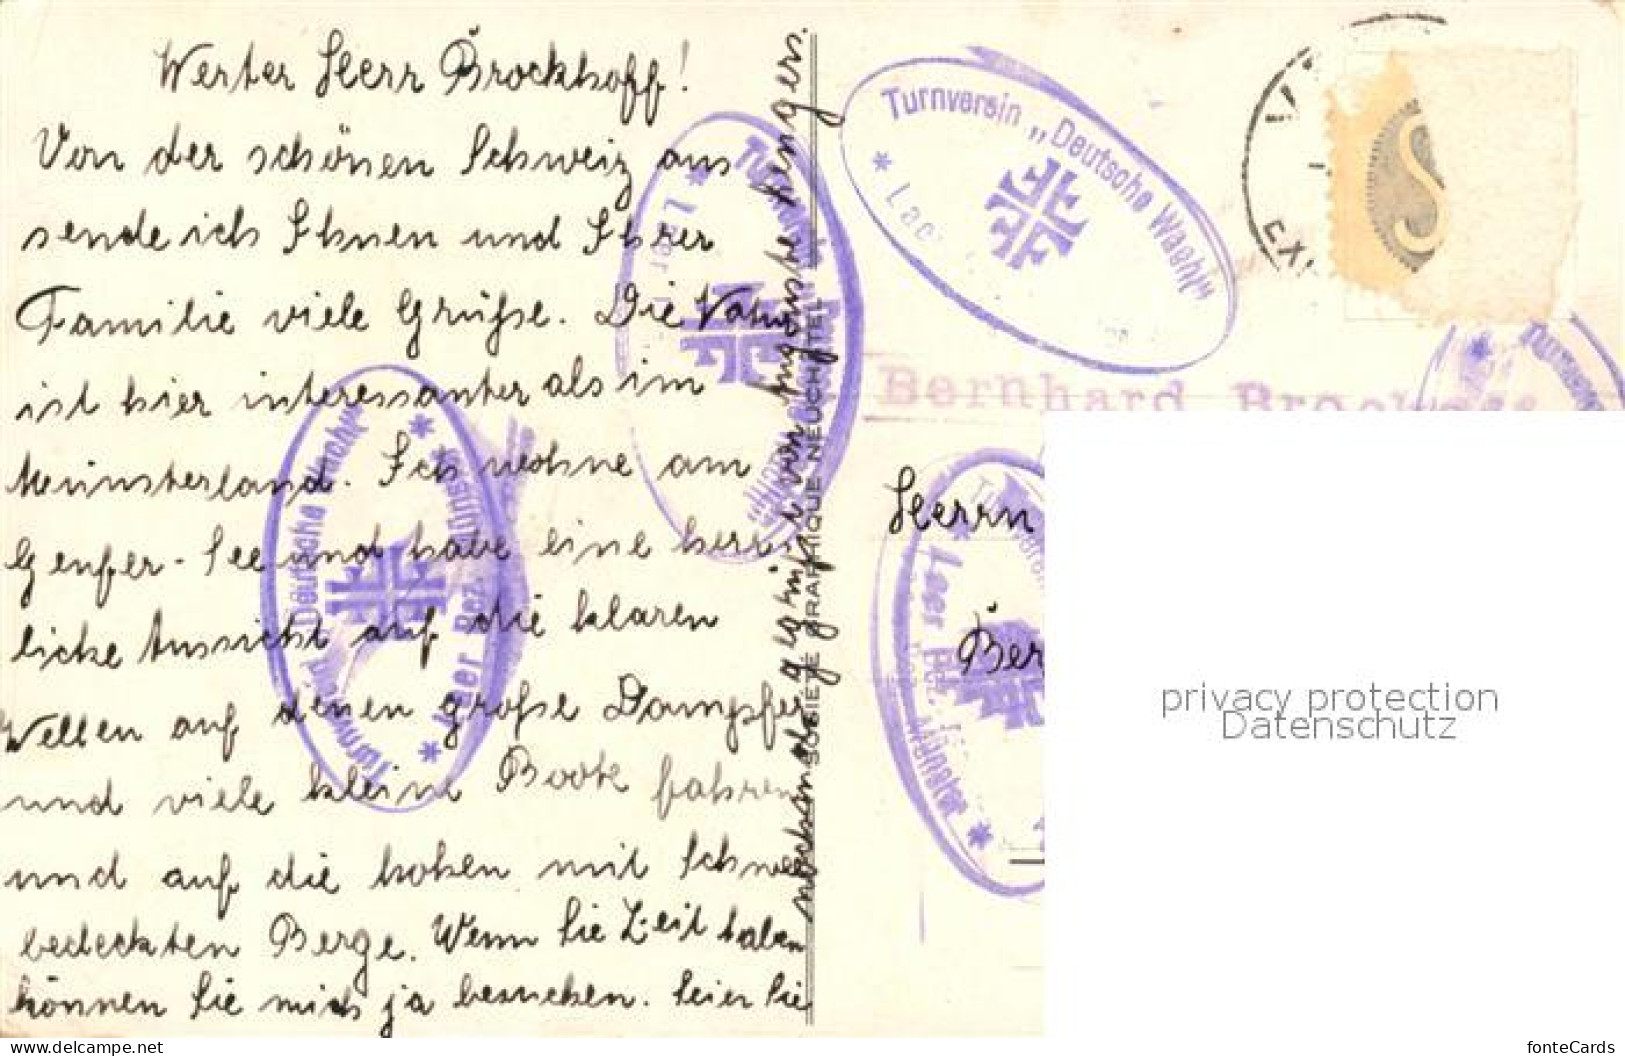 Werter Herr Brockhoff!
Von der schönen Schweiz aus
sende ich Ihnen und Ihrer
Familie viele Grüße. Die Natur
ist hier interessanter als im
Münsterland. Ich wohne am
Genfer-See und habe eine herr-
liche Aussicht auf die klaren
Wellen auf denen große Dampfer
und viele kleine Boote fahren
und auf die hohen mit Schnee
bedeckten Berge. Wenn Sie Zeit haben
können Sie mich ja besuchen. Seien Sie
nochmals gegrüßt von Auguste Hengers.
SOCIÉTÉ GRAPHIQUE NEUCHÂTEL
Turnverein „Deutsche Wacht“
* Laer
Turnverein Deutsche Wacht
* Laer Bez. Münster *
Turnverein
* Laer Bez. Münster *
Bernhard Brock
Herrn
Ber
privacy protection
Datenschutz
www.delcampe.net
fonteCards